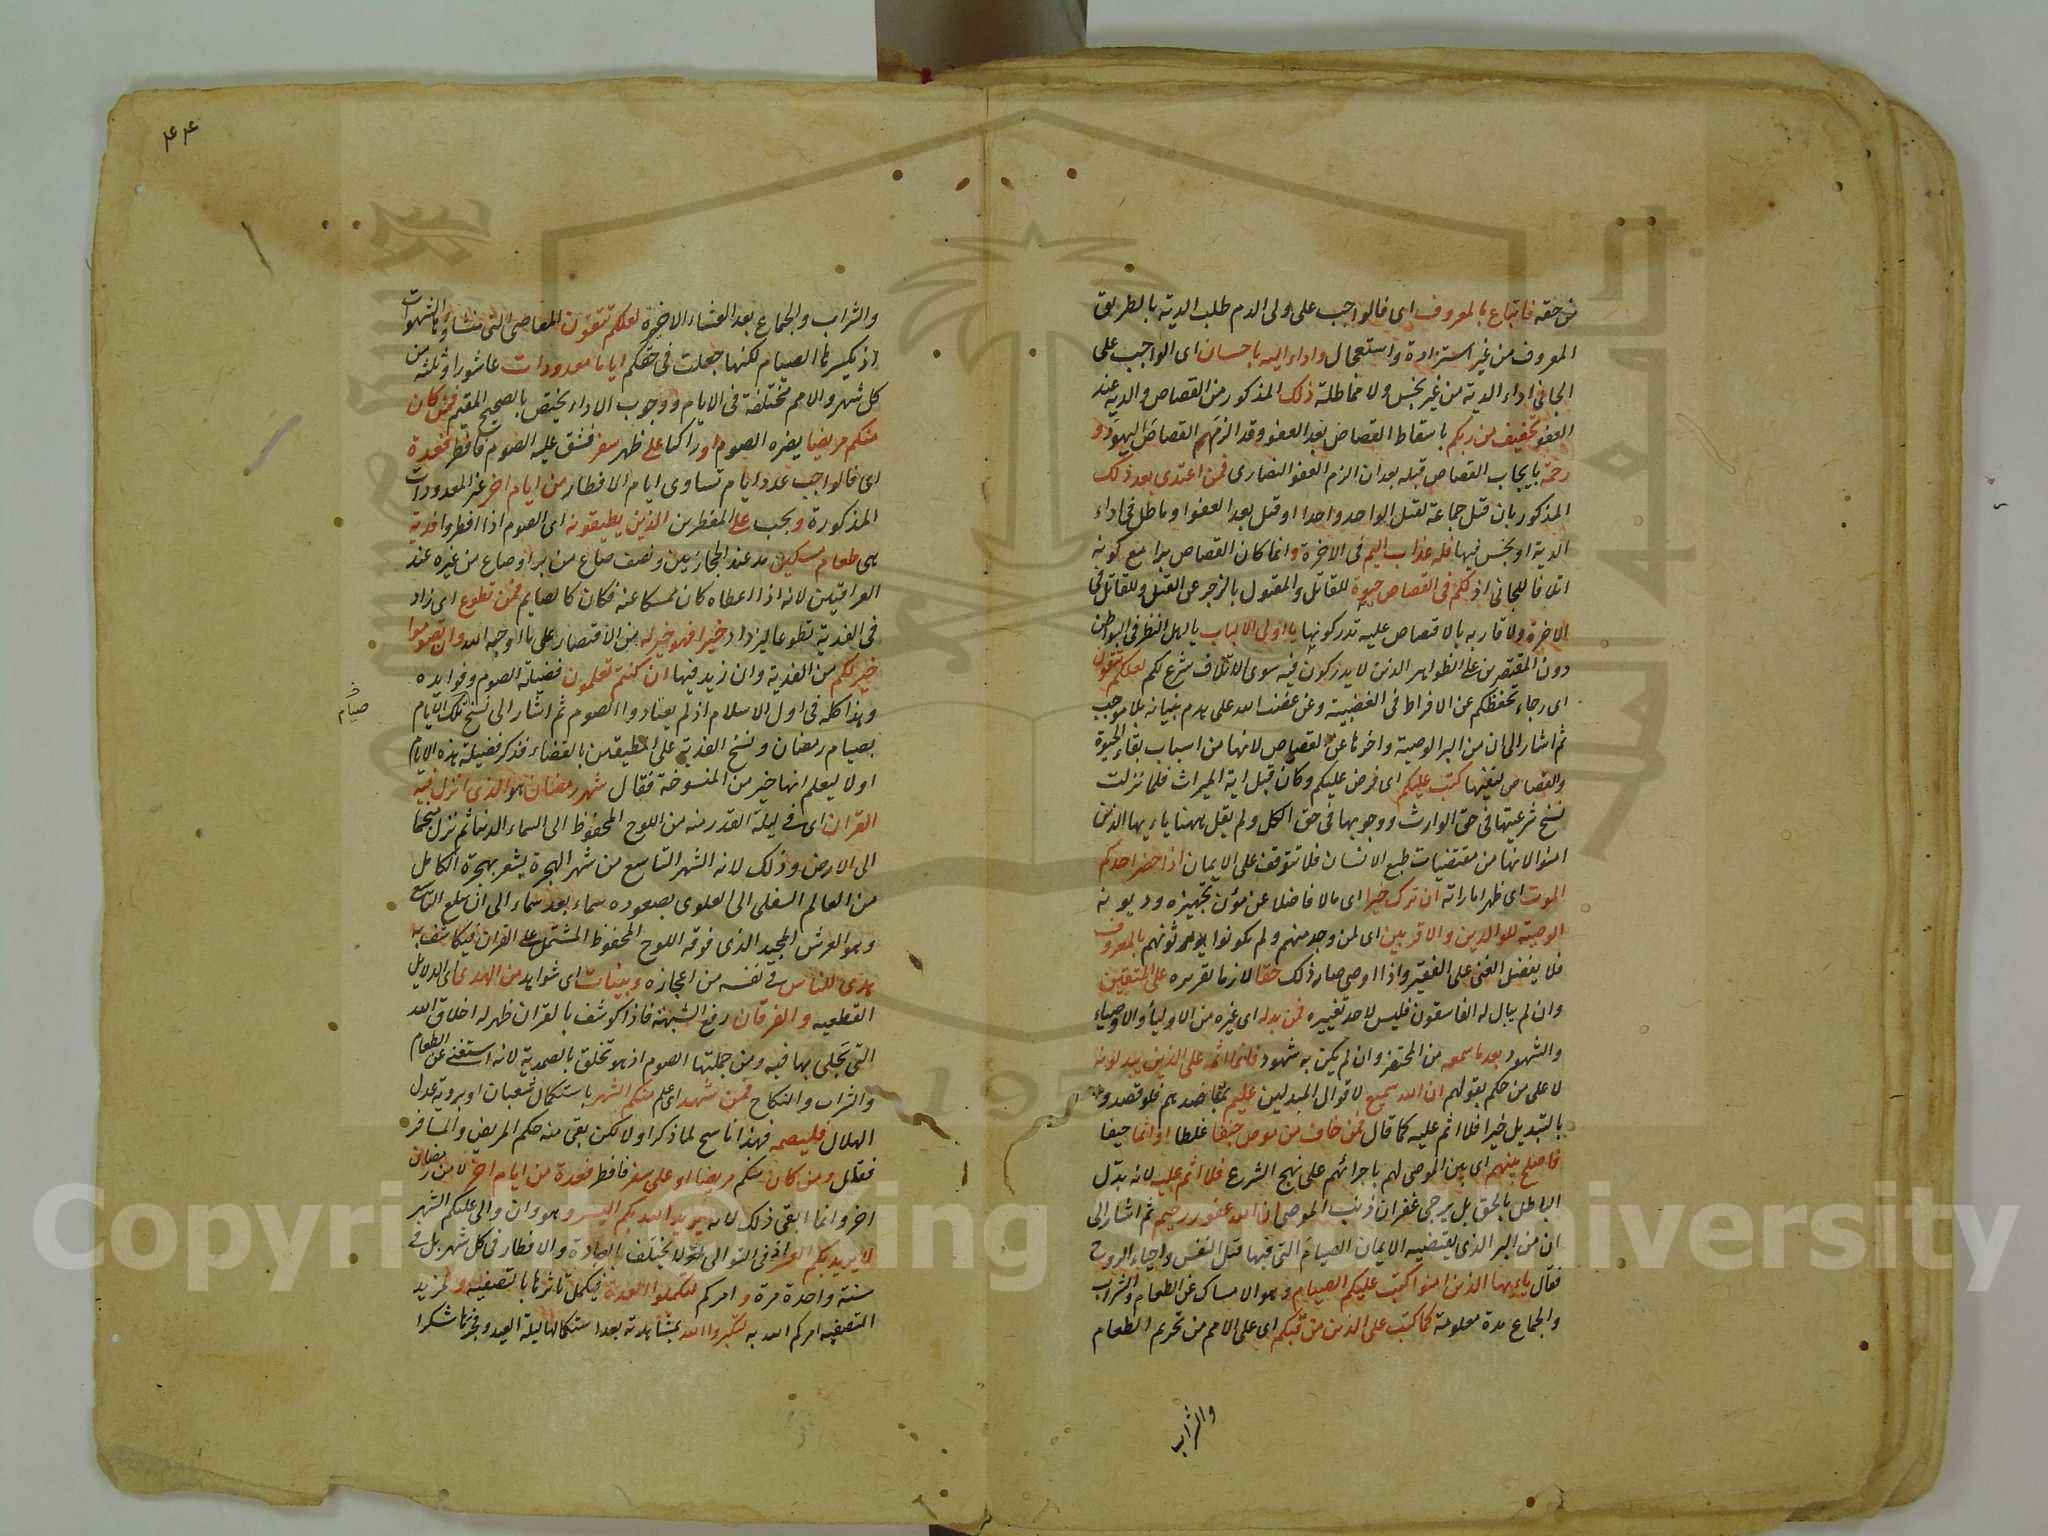 من حقه فاتباع بالمعروف اى فالواجب على ولى الدم طلب الدية بالطريق
المعروف من غير استزادة واستعجال واداء اليه باحسان اى الواجب على
الجانى اداء الدية من غير بخس ولا مماطلة ذلك المذكور من القصاص والدية عند
العفو تخفيف من ربكم باسقاط القصاص بعد العفو وقد الزم القصاص اليهود و
رحمة بايجاب القصاص قبله بعد ان الزم العفو النصارى فمن اعتدى بعد ذلك
المذكور بان قتل جماعة لقتل الواحد واحدا او قتل بعد العفو او ماطل فى اداء
الدية او بخس فيها فله عذاب اليم فى الاخرة وانما كان القصاص برا مع كونه
اتلافا للجانى اذ لكم فى القصاص حيوة للقاتل والمقتول بالزجر عن القتل وللقاتل فى
الاخرة ولاقاربه بالاقتصاص عليه تدركونها يا اولى الالباب يا اهل النظر فى البواطن
دون المقتصرين على الظواهر الذين لا يدركون فيه سوى الاتلاف شرع لكم لعلكم تتقون
اى رجاء تحفظكم عن الافراط فى الغضبية وعن غضب الله على هدم بنيانه بلا موجب
ثم اشار الى ان من البر الوصية واخرها عن القصاص لانها من اسباب بقاء الحيوة
والقصاص نفيها كتب عليكم اى فرض عليكم وكان قبل اية الميراث فلما نزلت
نسخ شرعيتها فى حق الوارث ووجوبها فى حق الكل ولم يقل ههنا يا ايها الذين
امنوا لانها من مقتضيات طبع الانسان فلا تتوقف على الايمان اذا حضر احدكم
الموت اى ظهر اماراته ان ترك خيرا اى مالا فاضلا عن مؤن تجهيزه وديونه
الوصية للوالدين والاقربين اى لمن وجد منهم ولم يكونوا يورثونهم بالمعروف
فلا يفضل الغنى على الفقير واذا اوصى صار ذلك حقا لازما تقريره على المتقين
وان لم يبال له الفاسقون فليس لاحد تغييره فمن بدله اى غيره من الاولياء والاوصياء
والشهود بعد ما سمعه من المحتضر وان لم يكن به شهود فانما اثمه على الذين يبدلونه
لا على من حكم بقولهم ان الله سميع لاقوال المبدلين عليم بمقاصدهم فلو قصدوا
بالتبديل خيرا فلا اثم عليه كما قال فمن خاف من موص جنفا غلطا او اثما حيفا
فاصلح بينهم اى بين الموصى لهم باجرائهم على نهج الشرع فلا اثم عليه لانه بدل
الباطل بالحق بل يرجى غفران ذنب الموصى ان الله غفور رحيم ثم اشار الى
ان من البر الذى يقتضيه الايمان الصيام التى فيها قتل النفس واحياء الروح
فقال يا ايها الذين امنوا كتب عليكم الصيام وهو الامساك عن الطعام والشراب
والجماع مدة معلومة كما كتب على الذين من قبلكم اى على الامم من تحريم الطعام
والشراب
٤٤
والشراب والجماع بعد العشاء الاخيرة لعلكم تتقون المعاصى التى منشاؤها الشهوات
اذ يكسرها الصيام لكنها جعلت فى حقكم اياما معدودات عاشورا وثلثة من
كل شهر والامم مختلفة فى الايام ووجوب الاداء يختص بالصحيح المقيم فمن كان
منكم مريضا يضره الصوم او راكبا على ظهر سفر فشق عليه الصوم فافطر فعدة
اى فالواجب عدد ايام تساوى ايام الافطار من ايام اخر غير المعدودات
المذكورة ويجب على المفطرين الذين يطيقونه اى الصوم اذا افطروا فدية
هى طعام مسكين مد عند الحجازيين ونصف صاع من بر او صاع من غيره عند
العراقيين لانه اذا اعطاه كان ممسكا عنه فكان كالصايم فمن تطوع اى زاد
فى الفدية تطوعا ليزداد خيرا فهو خير له من الاقتصار على ما اوجبه الله وان تصوموا
خير لكم من الفدية وان زيد فيها ان كنتم تعلمون فضيلة الصوم وفوايده
وهذا كله فى اول الاسلام اذ لم يعتادوا الصوم ثم اشار الى نسخ تلك الايام
صيام
بصيام رمضان ونسخ الفدية على المطيقين بالقضاء فذكر فضيلة هذه الايام
اولا ليعلم انها خير من المنسوخة فقال شهر رمضان هو الذى انزل فيه
القران اى فى ليلة القدر منه من اللوح المحفوظ الى السماء الدنيا ثم نزل منجما
الى الارض وذلك لانه الشهر التاسع من شهر الهجرة يشعر بهجرة الكامل
من العالم السفلى الى العلوى بصعوده سماء بعد سماء الى ان بلغ التاسع
وهو العرش المجيد الذى فوقه اللوح المحفوظ المشتمل على القران فيكاشف به
هدى للناس فى نفسه من اعجازه وبينات اى شواهد من الهدى اى الدلايل
القطعيه والفرقان رفع الشبهة فاذا كوشف بالقران ظهر له اخلاق الله
التى تجلى بها فيه ومن جملتها الصوم اذ هو تخلق بالصمدية لانه استغنى عن الطعام
والشراب والنكاح فمن شهد اى علم منكم الشهر باستكمال شعبان او بروية عدل
الهلال فليصمه فهذا ناسخ لما ذكر اولا لكن بقى منه حكم المريض والمسافر
فقال ومن كان منكم مريضا او على سفر فافطر فعدة من ايام اخر لا من رمضان
اخر وانما ابقى ذلك لانه يريد الله بكم اليسر وهو وان والى عليكم الشهر
لا يريد بكم العسر اذ فى التوالى لا يختلف العادة والافطار فى كل شهر بل فى
سنة واحدة مرة وامركم لتكملوا العدة فيكمل تاثرها بالتصفيه ولمزيد
التصفيه امركم الله به لتكبروا الله بمشاهدته بعد استكمالها ليلة العيد وفجرها شكرا
Copyright © King Saud University
1957